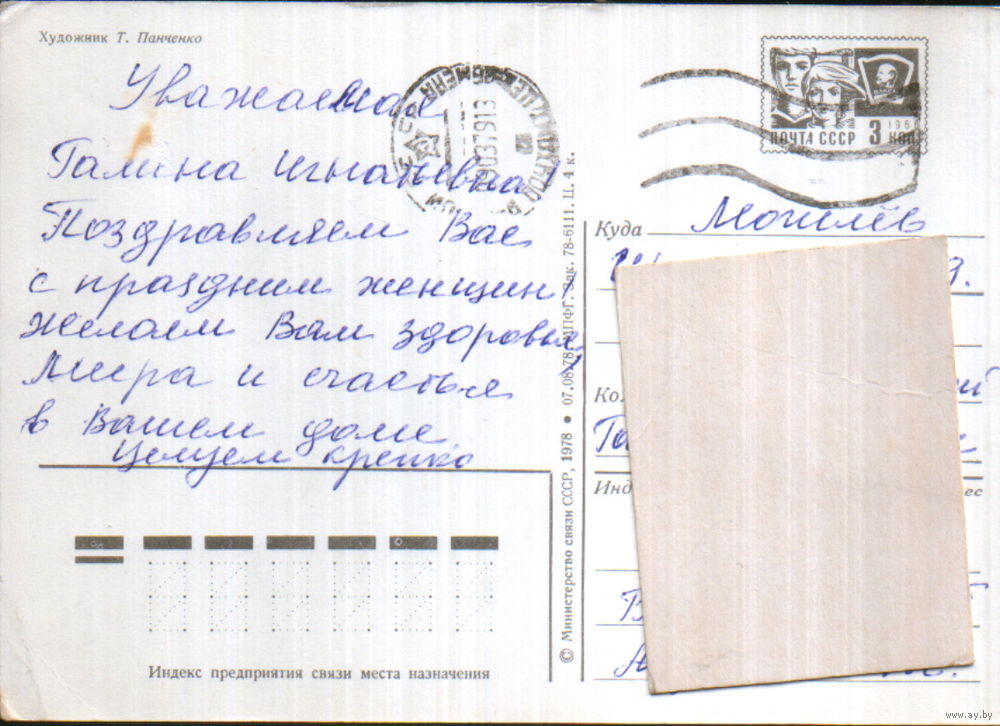 Художник Т. Панченко
Уважаемая
Галина Игнатьевна!
Поздравляем Вас
с праздним женщин,
желаем Вам здоровья,
мира и счастья
в Вашем доме.
Целуем крепко
ПОЧТА СССР 3 КОП
Куда Могилёв
в.
Ко
ий
Га
Инд
ес
© Министерство связи СССР, 1978 • 07.08.78. МПФГ. Зак. 78-6111. Ц. 4 к.
Индекс предприятия связи места назначения
www.ay.by